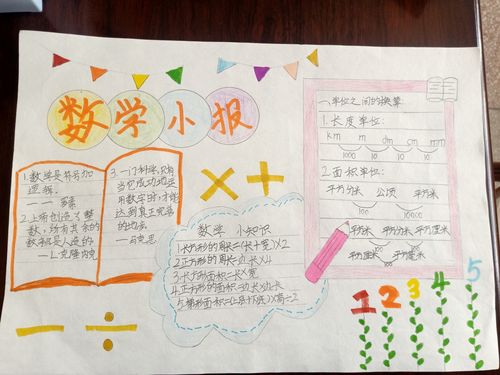 数学小报
1.数学是符号加
逻辑.
——罗素
2.上帝创造了整
数,所有其余的
数都是人造的.
——L·克隆内克
3.一门科学,只有
当它成功地运
用数学时,才能
达到真正完善
的地步
——马克思
×+
数学 小知识
1.长方形的周长=(长+宽)×2
2.正方形的周长=边长×4
3.长方形面积=长×宽
4.正方形的面积=边长×边长
5.梯形面积=(上底+下底)×高÷2
一、单位之间的换算
1.长度单位:
km m dm cm mm
1000 10 10 10
2.面积单位:
平方千米 公顷 平方米
100 10000
平方米 平方分米 平方厘米
100 100
1 2 3 4 5
－ ÷